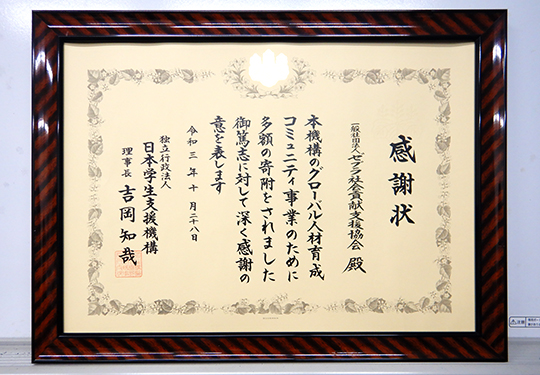 感謝状
一般社団法人セプラ社会貢献支援協会 殿
本機構のグローバル人材育成
コミュニティ事業のために
多額の寄附をされました
御篤志に対して深く感謝の
意を表します
令和三年十月二八日
独立行政法人
日本学生支援機構
理事長 吉岡知哉